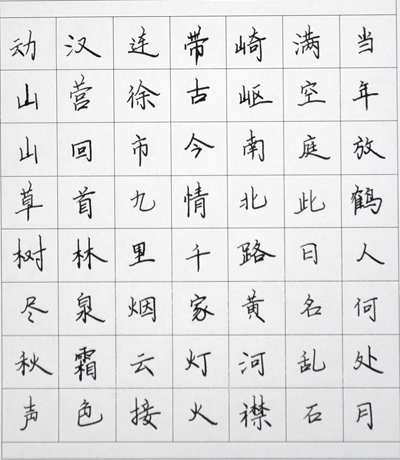 当年放鹤人何处月
满空庭此日名乱石
崎岖南北路黄河襟
带古今情千家灯火
连徐市九里烟云接
汉营回首林泉霜色
动山山草树尽秋声